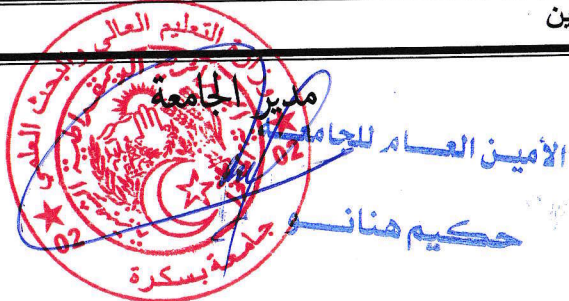 ين
مدير الجامعة
الأمين العام للجامعة
حكيم هنانو
وزارة التعليم العالي والبحث العلمي
جامعة بسكرة
02
02